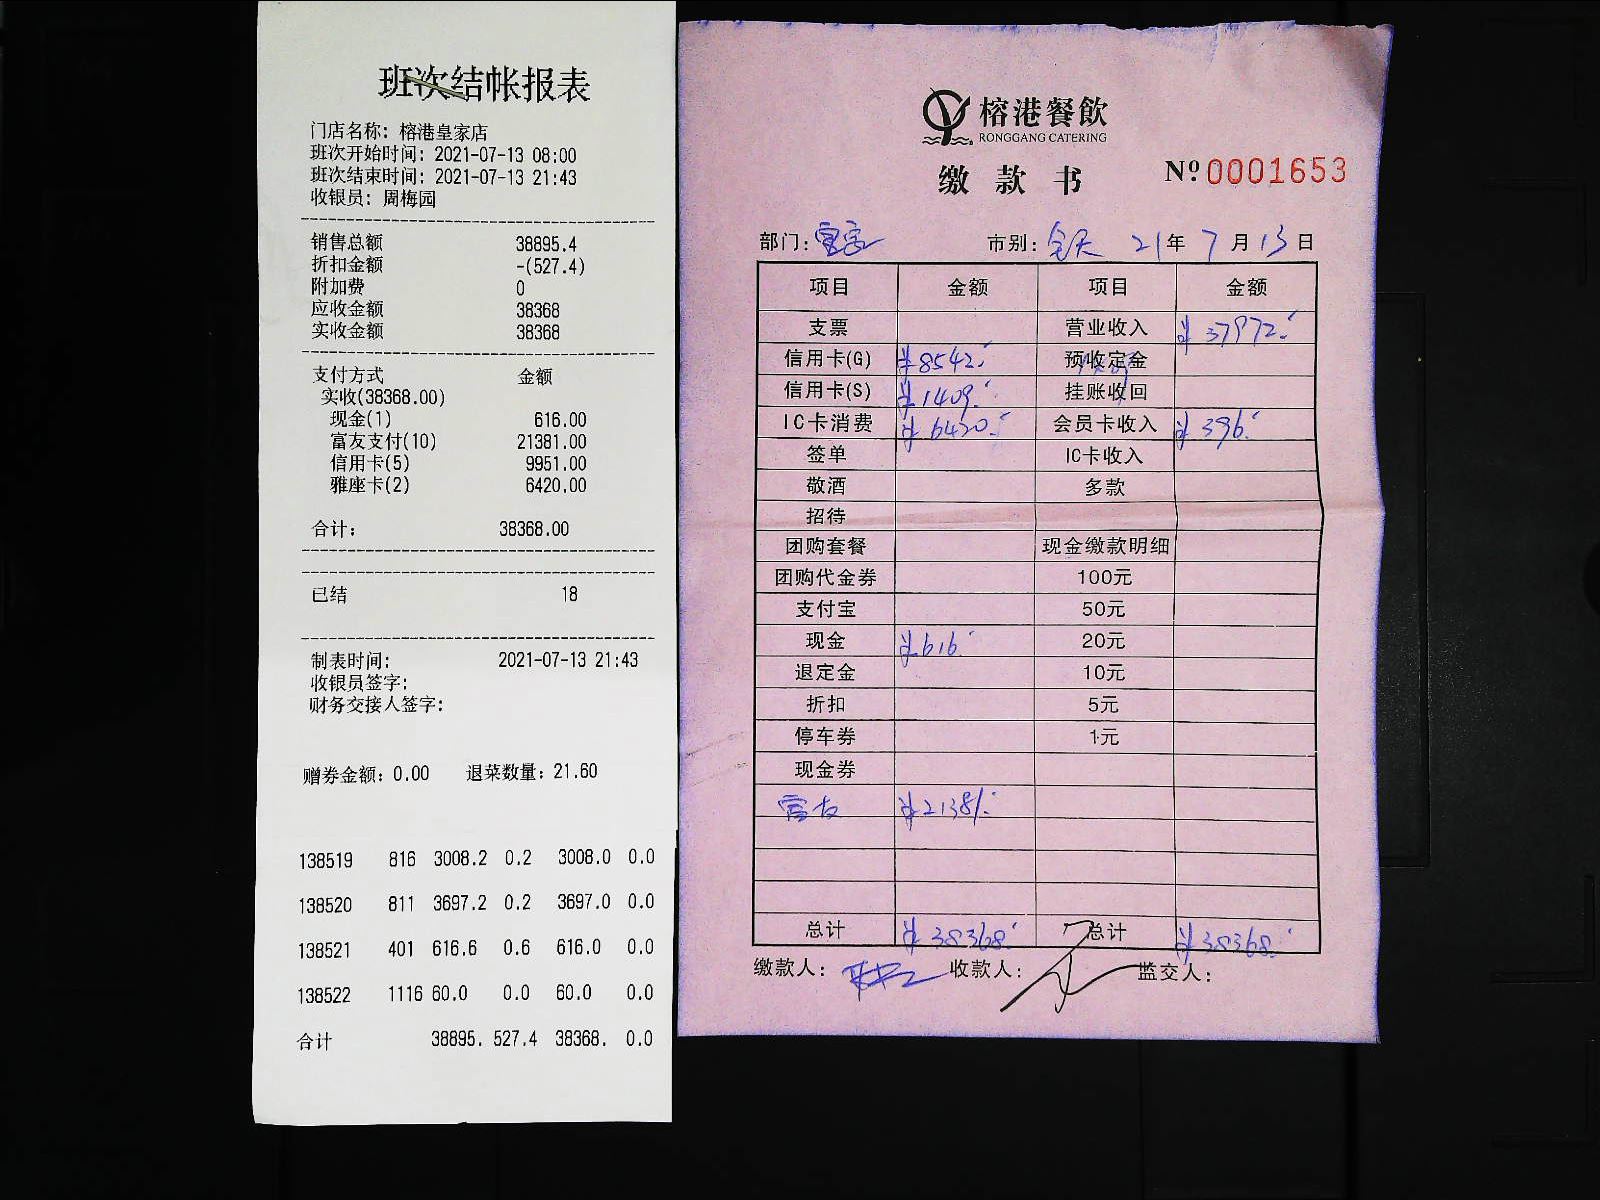 班次结帐报表
门店名称: 榕港皇家店
班次开始时间: 2021-07-13 08:00
班次结束时间: 2021-07-13 21:43
收银员: 周梅园
销售总额 38895.4
折扣金额 -(527.4)
附加费 0
应收金额 38368
实收金额 38368
支付方式 金额
实收(38368.00)
现金(1) 616.00
富友支付(10) 21381.00
信用卡(5) 9951.00
雅座卡(2) 6420.00
合计: 38368.00
已结 18
制表时间: 2021-07-13 21:43
收银员签字:
财务交接人签字:
赠券金额: 0.00 退菜数量: 21.60
138519 816 3008.2 0.2 3008.0 0.0
138520 811 3697.2 0.2 3697.0 0.0
138521 401 616.6 0.6 616.0 0.0
138522 1116 60.0 0.0 60.0 0.0
合计 38895. 527.4 38368. 0.0
榕港餐飲
RONGGANG CATERING
缴款书 Nº 0001653
部门: 皇家 市别: 全天 21年 7月 13日
项目 金额 项目 金额
支票 营业收入 ¥37972.
信用卡(G) ¥8542. 预收定金
信用卡(S) ¥1409. 挂账收回
IC卡消费 ¥6420. 会员卡收入 ¥396.
签单 IC卡收入
敬酒 多款
招待
团购套餐 现金缴款明细
团购代金券 100元
支付宝 50元
现金 ¥616. 20元
退定金 10元
折扣 5元
停车券 1元
现金券
富友 ¥21381.
总计 ¥38368. 总计 ¥38368.
缴款人: 收款人: 监交人: